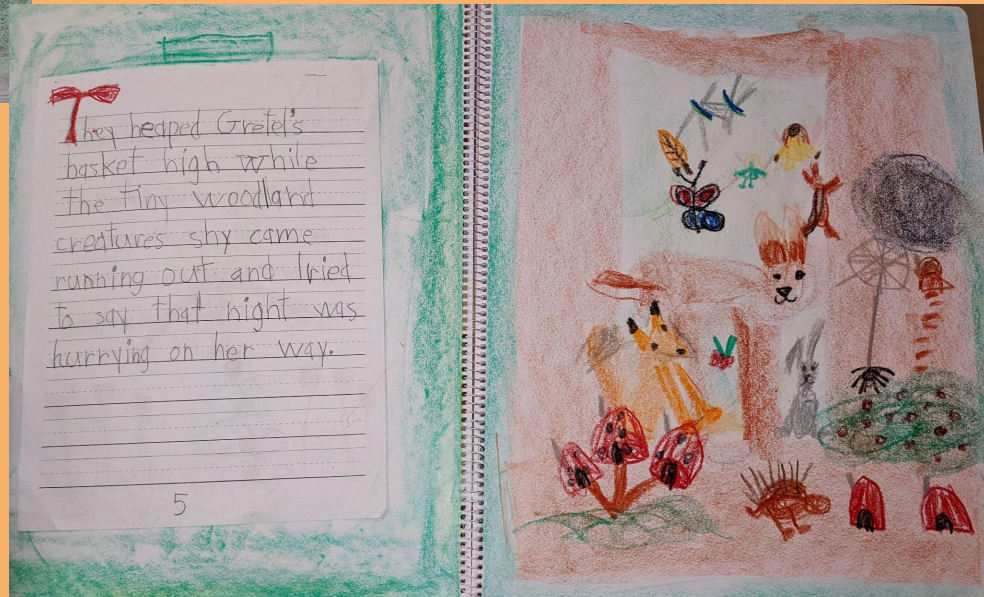 They heaped Gretel's
basket high while
the tiny woodland
creatures shy came
running out and tried
to say that night was
hurrying on her way.
5